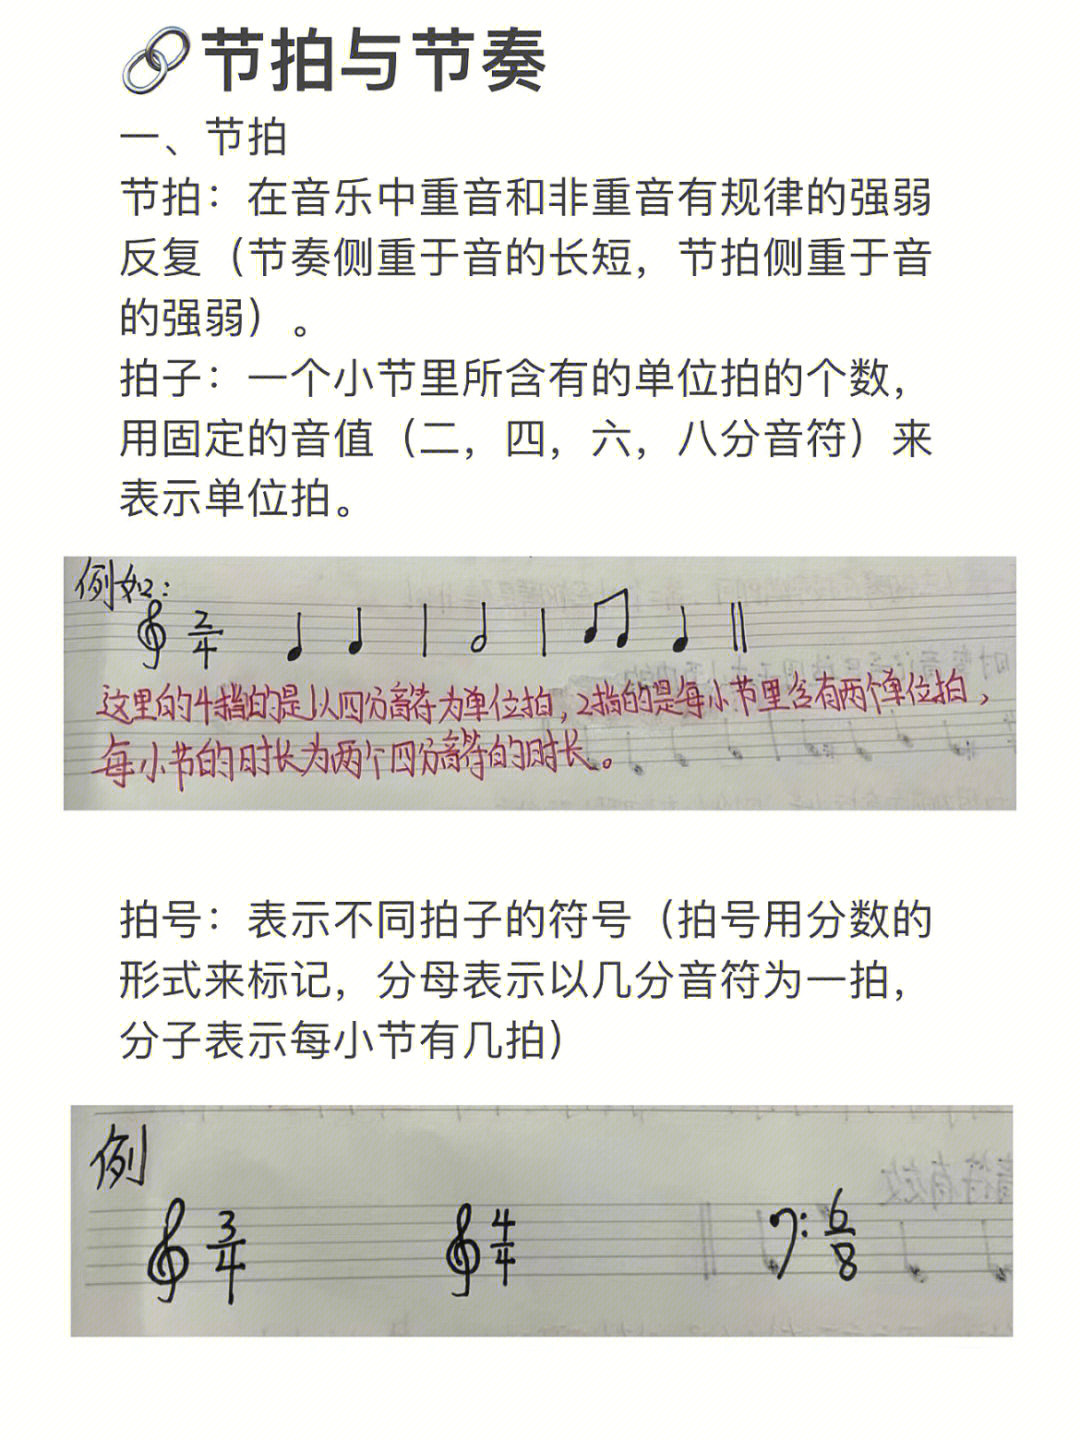 节拍与节奏
一、节拍
节拍：在音乐中重音和非重音有规律的强弱
反复（节奏侧重于音的长短，节拍侧重于音
的强弱）。
拍子：一个小节里所含有的单位拍的个数，
用固定的音值（二，四，六，八分音符）来
表示单位拍。
例如：
2
4
这里的4指的是以四分音符为单位拍，2指的是每小节里含有两个单位拍，
每小节的时长为两个四分音符的时长。
拍号：表示不同拍子的符号（拍号用分数的
形式来标记，分母表示以几分音符为一拍，
分子表示每小节有几拍）
例
3 4 6
4 4 8